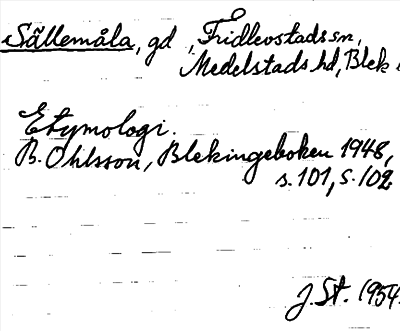 Sällemåla, gd, Fridlevstads sn,
Medelstads hd, Blek
Etymologi.
B. Ohlsson, Blekingeboken 1948,
s. 101, s. 102
J. St. 1954.